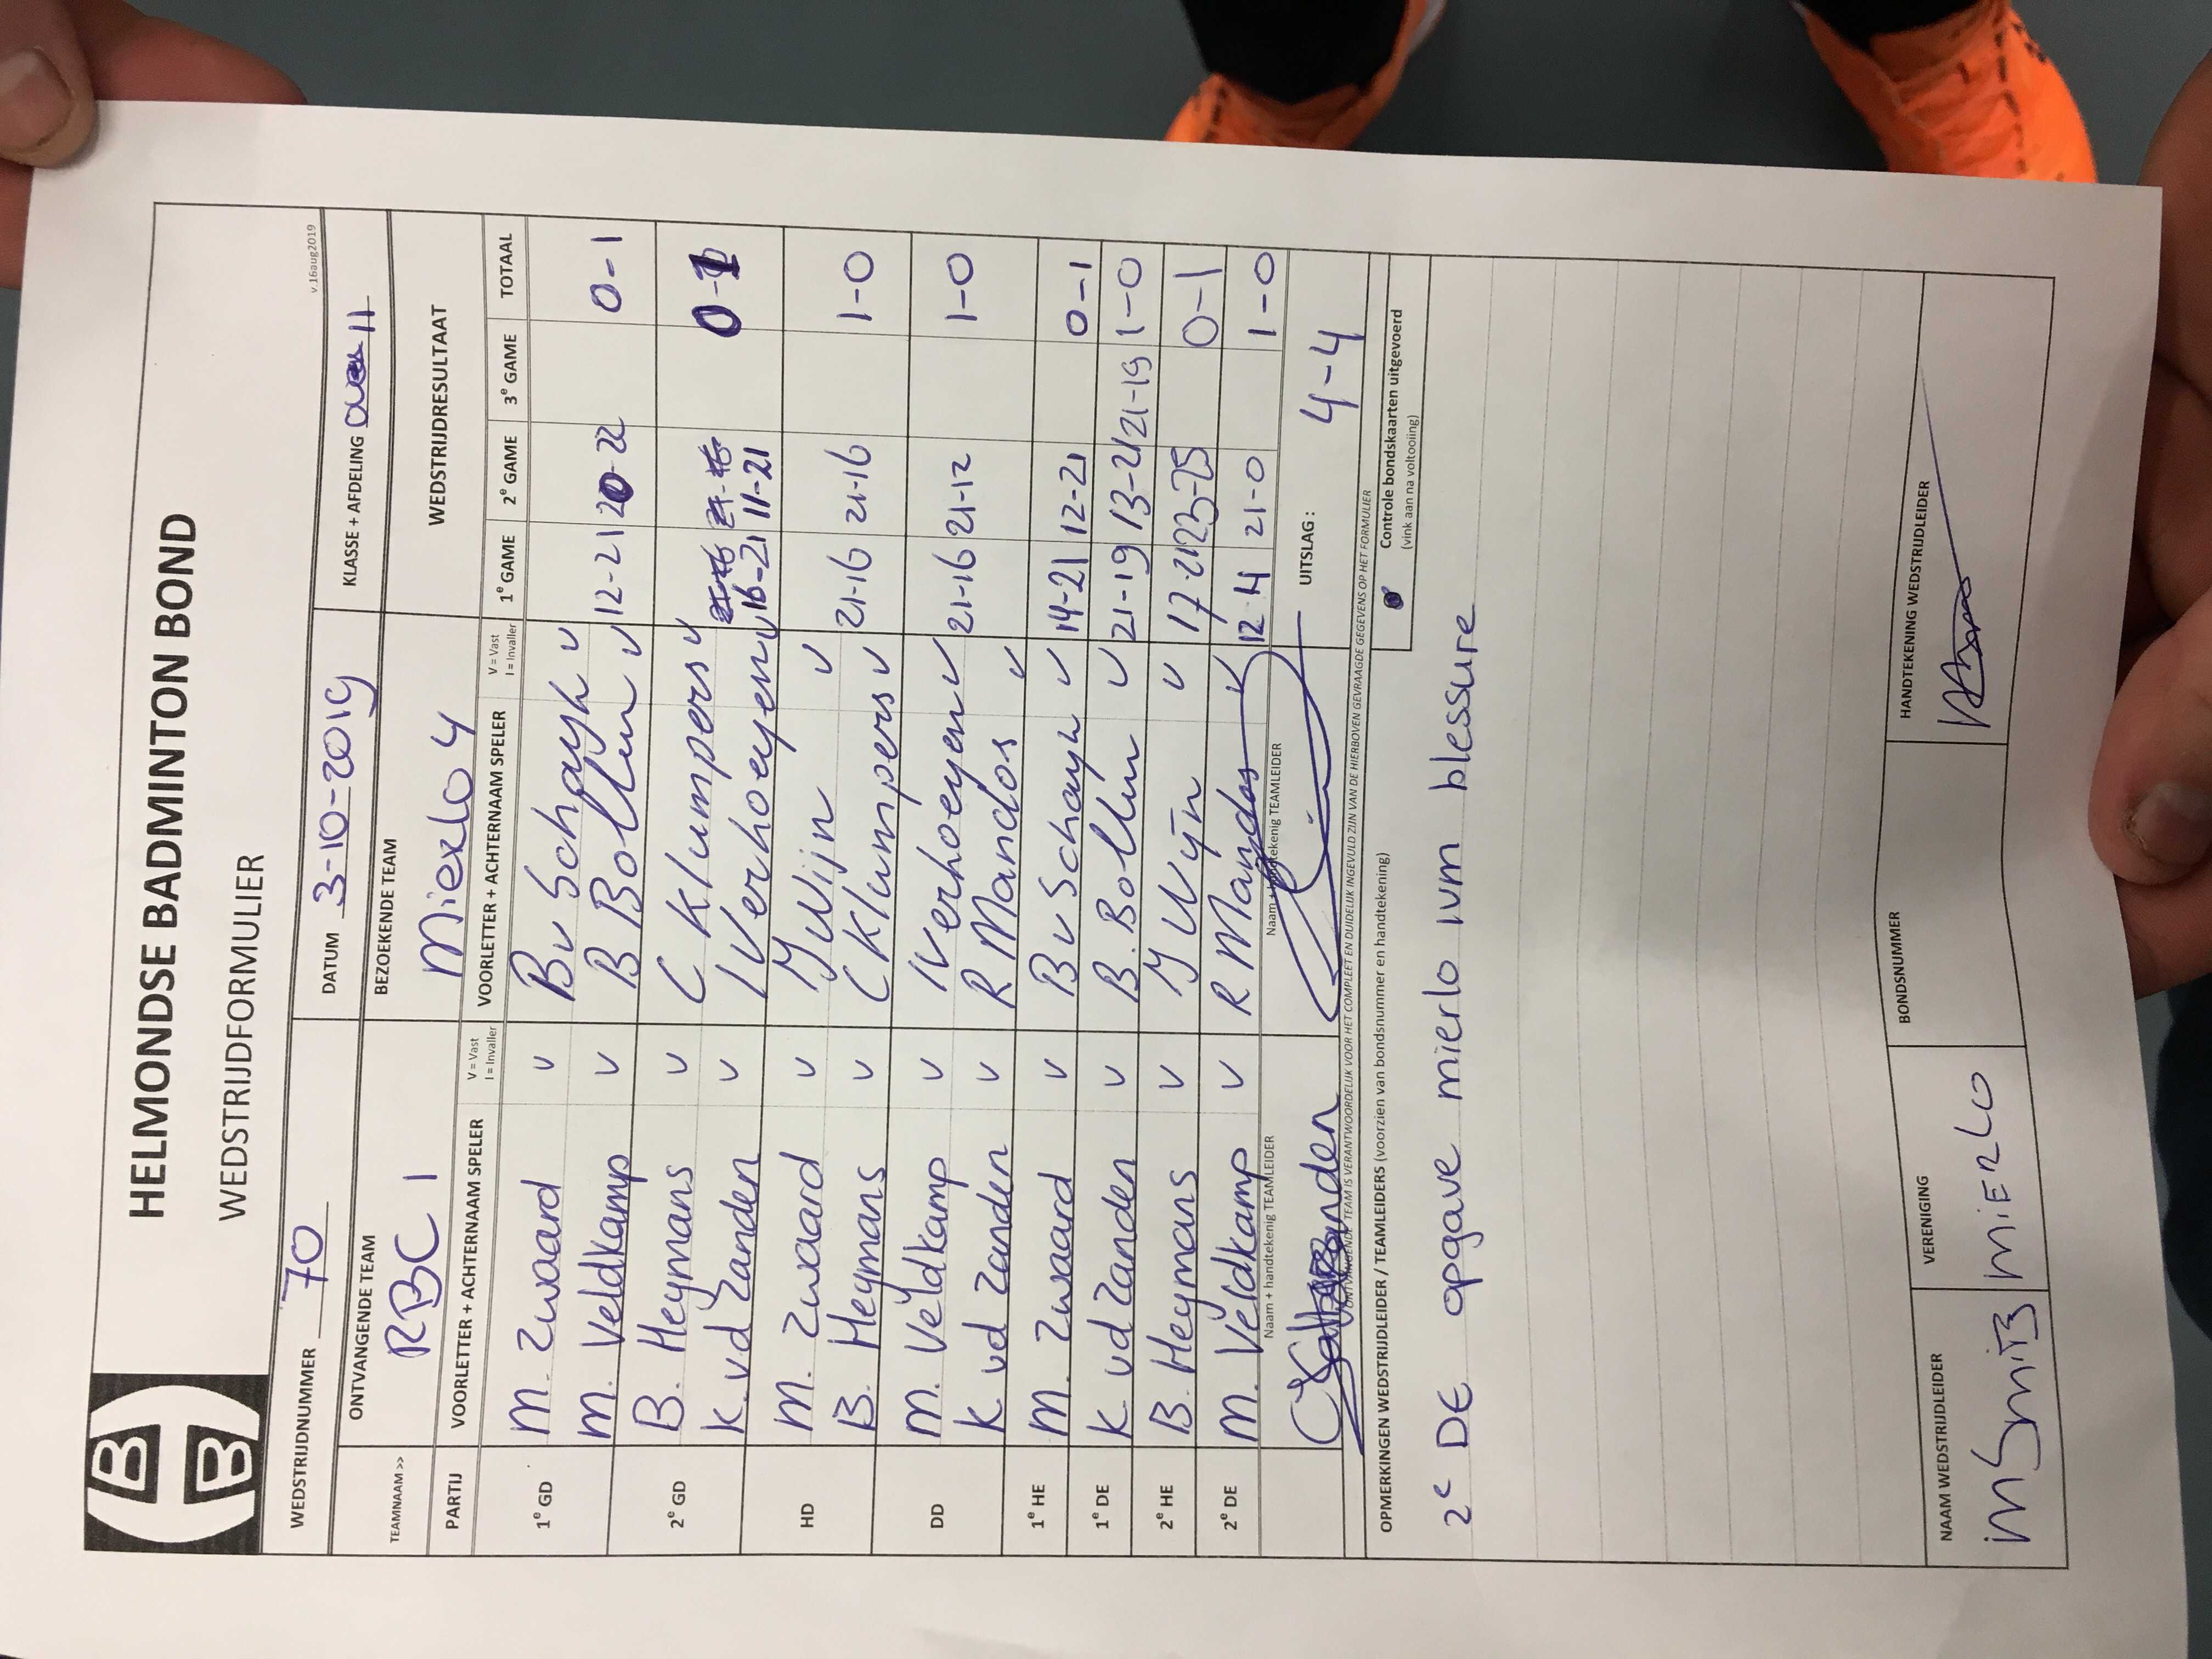 HELMONDSE BADMINTON BOND
WEDSTRIJDFORMULIER
v.16aug2019
WEDSTRIJDNUMMER 70 DATUM 3-10-2019 KLASSE + AFDELING 11
ONTVANGENDE TEAM BEZOEKENDE TEAM WEDSTRIJDRESULTAAT
TEAMNAAM >> RBC 1 Mierlo 4
PARTIJ VOORLETTER + ACHTERNAAM SPELER V = Vast I = Invaller VOORLETTER + ACHTERNAAM SPELER V = Vast I = Invaller 1e GAME 2e GAME 3e GAME TOTAAL
1e GD M. Zwaard V B v Schayk V
M. Veldkamp V B Bollun V 12-21 20-22 0-1
2e GD B. Heymans V C Klumpers V
K. vd Zanden V I Verhoeyen V 16-21 11-21 0-1
HD M. Zwaard V J Wijn V
B. Heymans V C Klumpers V 21-16 21-16 1-0
DD M. Veldkamp V I Verhoeyen V
K vd Zanden V R Mandos V 21-16 21-12 1-0
1e HE M. Zwaard V B v Schayk V 14-21 12-21 0-1
1e DE K vd Zanden V B. Bollun V 21-19 13-21 21-19 1-0
2e HE B. Heymans V J Wijn V 17-21 23-25 0-1
2e DE M. Veldkamp V R. Mandos V 12-11 21-0 1-0
Naam + handtekenig TEAMLEIDER Naam + handtekenig TEAMLEIDER UITSLAG : 4-4
ONTVANGENDE TEAM IS VERANTWOORDELIJK VOOR HET COMPLEET EN DUIDELIJK INGEVULD ZIJN VAN DE HIERBOVEN GEVRAAGDE GEGEVENS OP HET FORMULIER
OPMERKINGEN WEDSTRIJDLEIDER / TEAMLEIDERS (voorzien van bondsnummer en handtekening) Controle bondskaarten uitgevoerd
(vink aan na voltooiing)
2e DE opgave mierlo ivm blessure
NAAM WEDSTRIJDLEIDER VERENIGING BONDSNUMMER HANDTEKENING WEDSTRIJDLEIDER
M Smits MIERLO